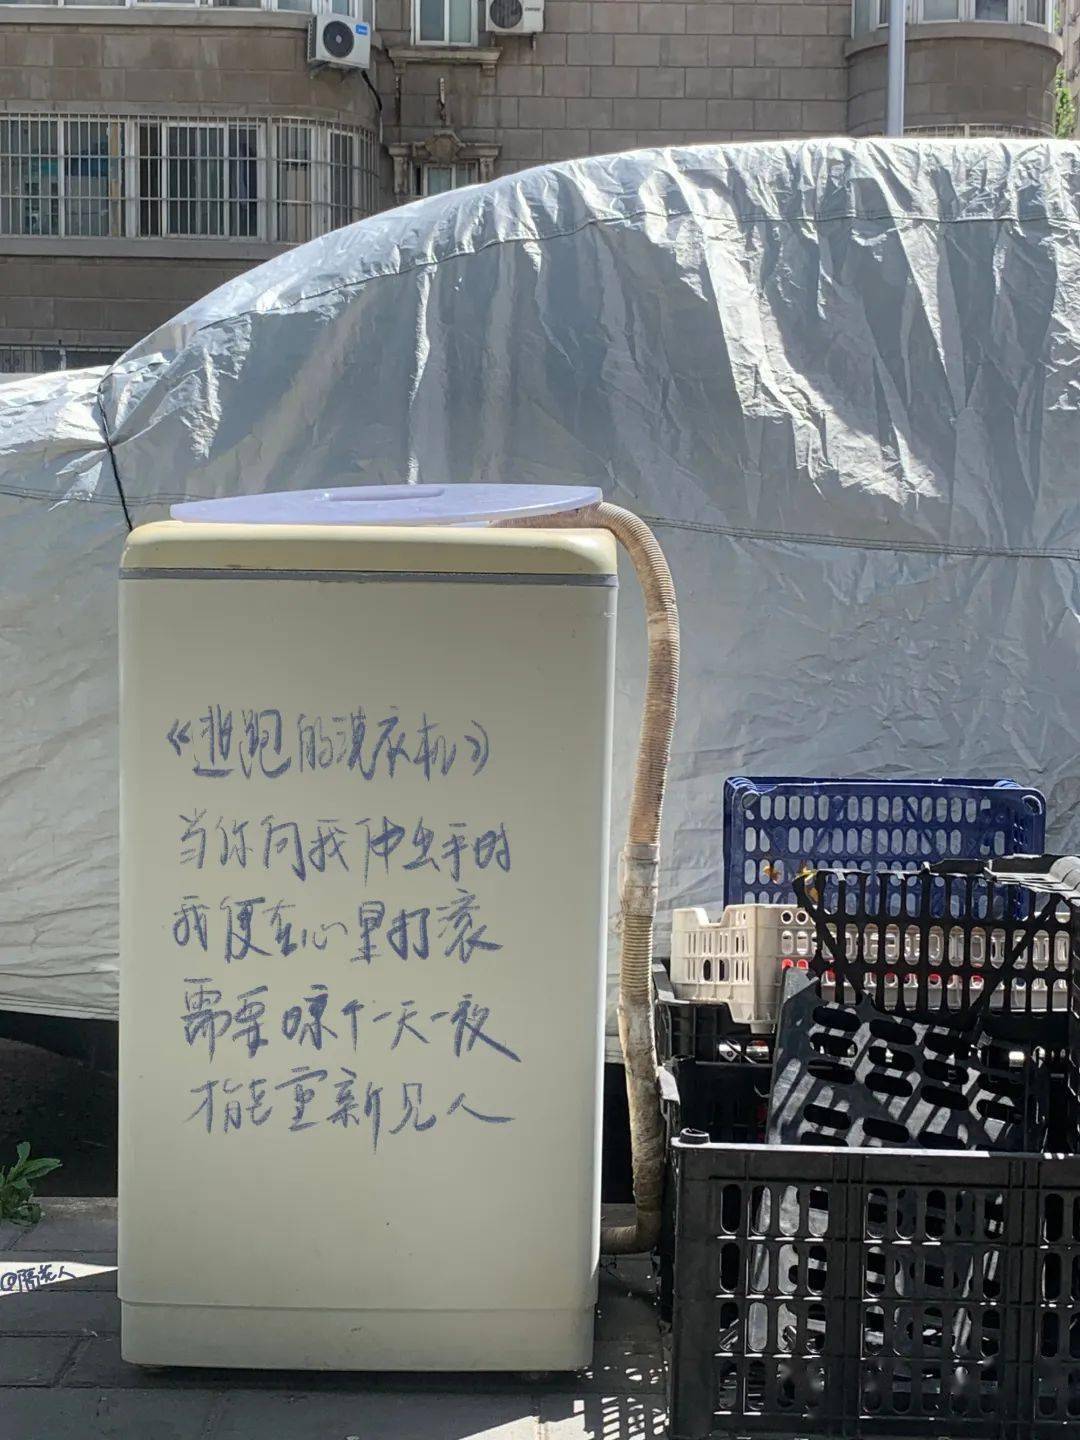 《逃跑的洗衣机》
当你向我伸出手时
我便在心里打滚
需要晾个一天一夜
才能重新见人